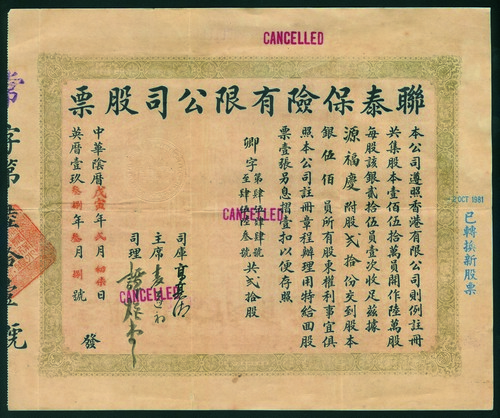 CANCELLED
聯泰保險有限公司股票
本公司遵照香港有限公司則例註冊
共集股本壹佰伍拾萬員開作陸萬股
每股該銀貳拾伍員壹次收足茲據
源福慶 附股貳拾份交到股本
銀伍佰員所有股東權利事宜俱
照本公司註冊章程辦理用特給回股
票壹張另息摺壹扣以便存照
卿字 第肆佰肆肆號 至肆佰陸叁號 共貳拾股
CANCELLED
司庫
主席
司理
CANCELLED
中華陰曆戊寅年弍月初柒日
英曆壹玖叁捌年叁月捌號 發
OCT 1981
已轉換新股票
字第陸拾壹號